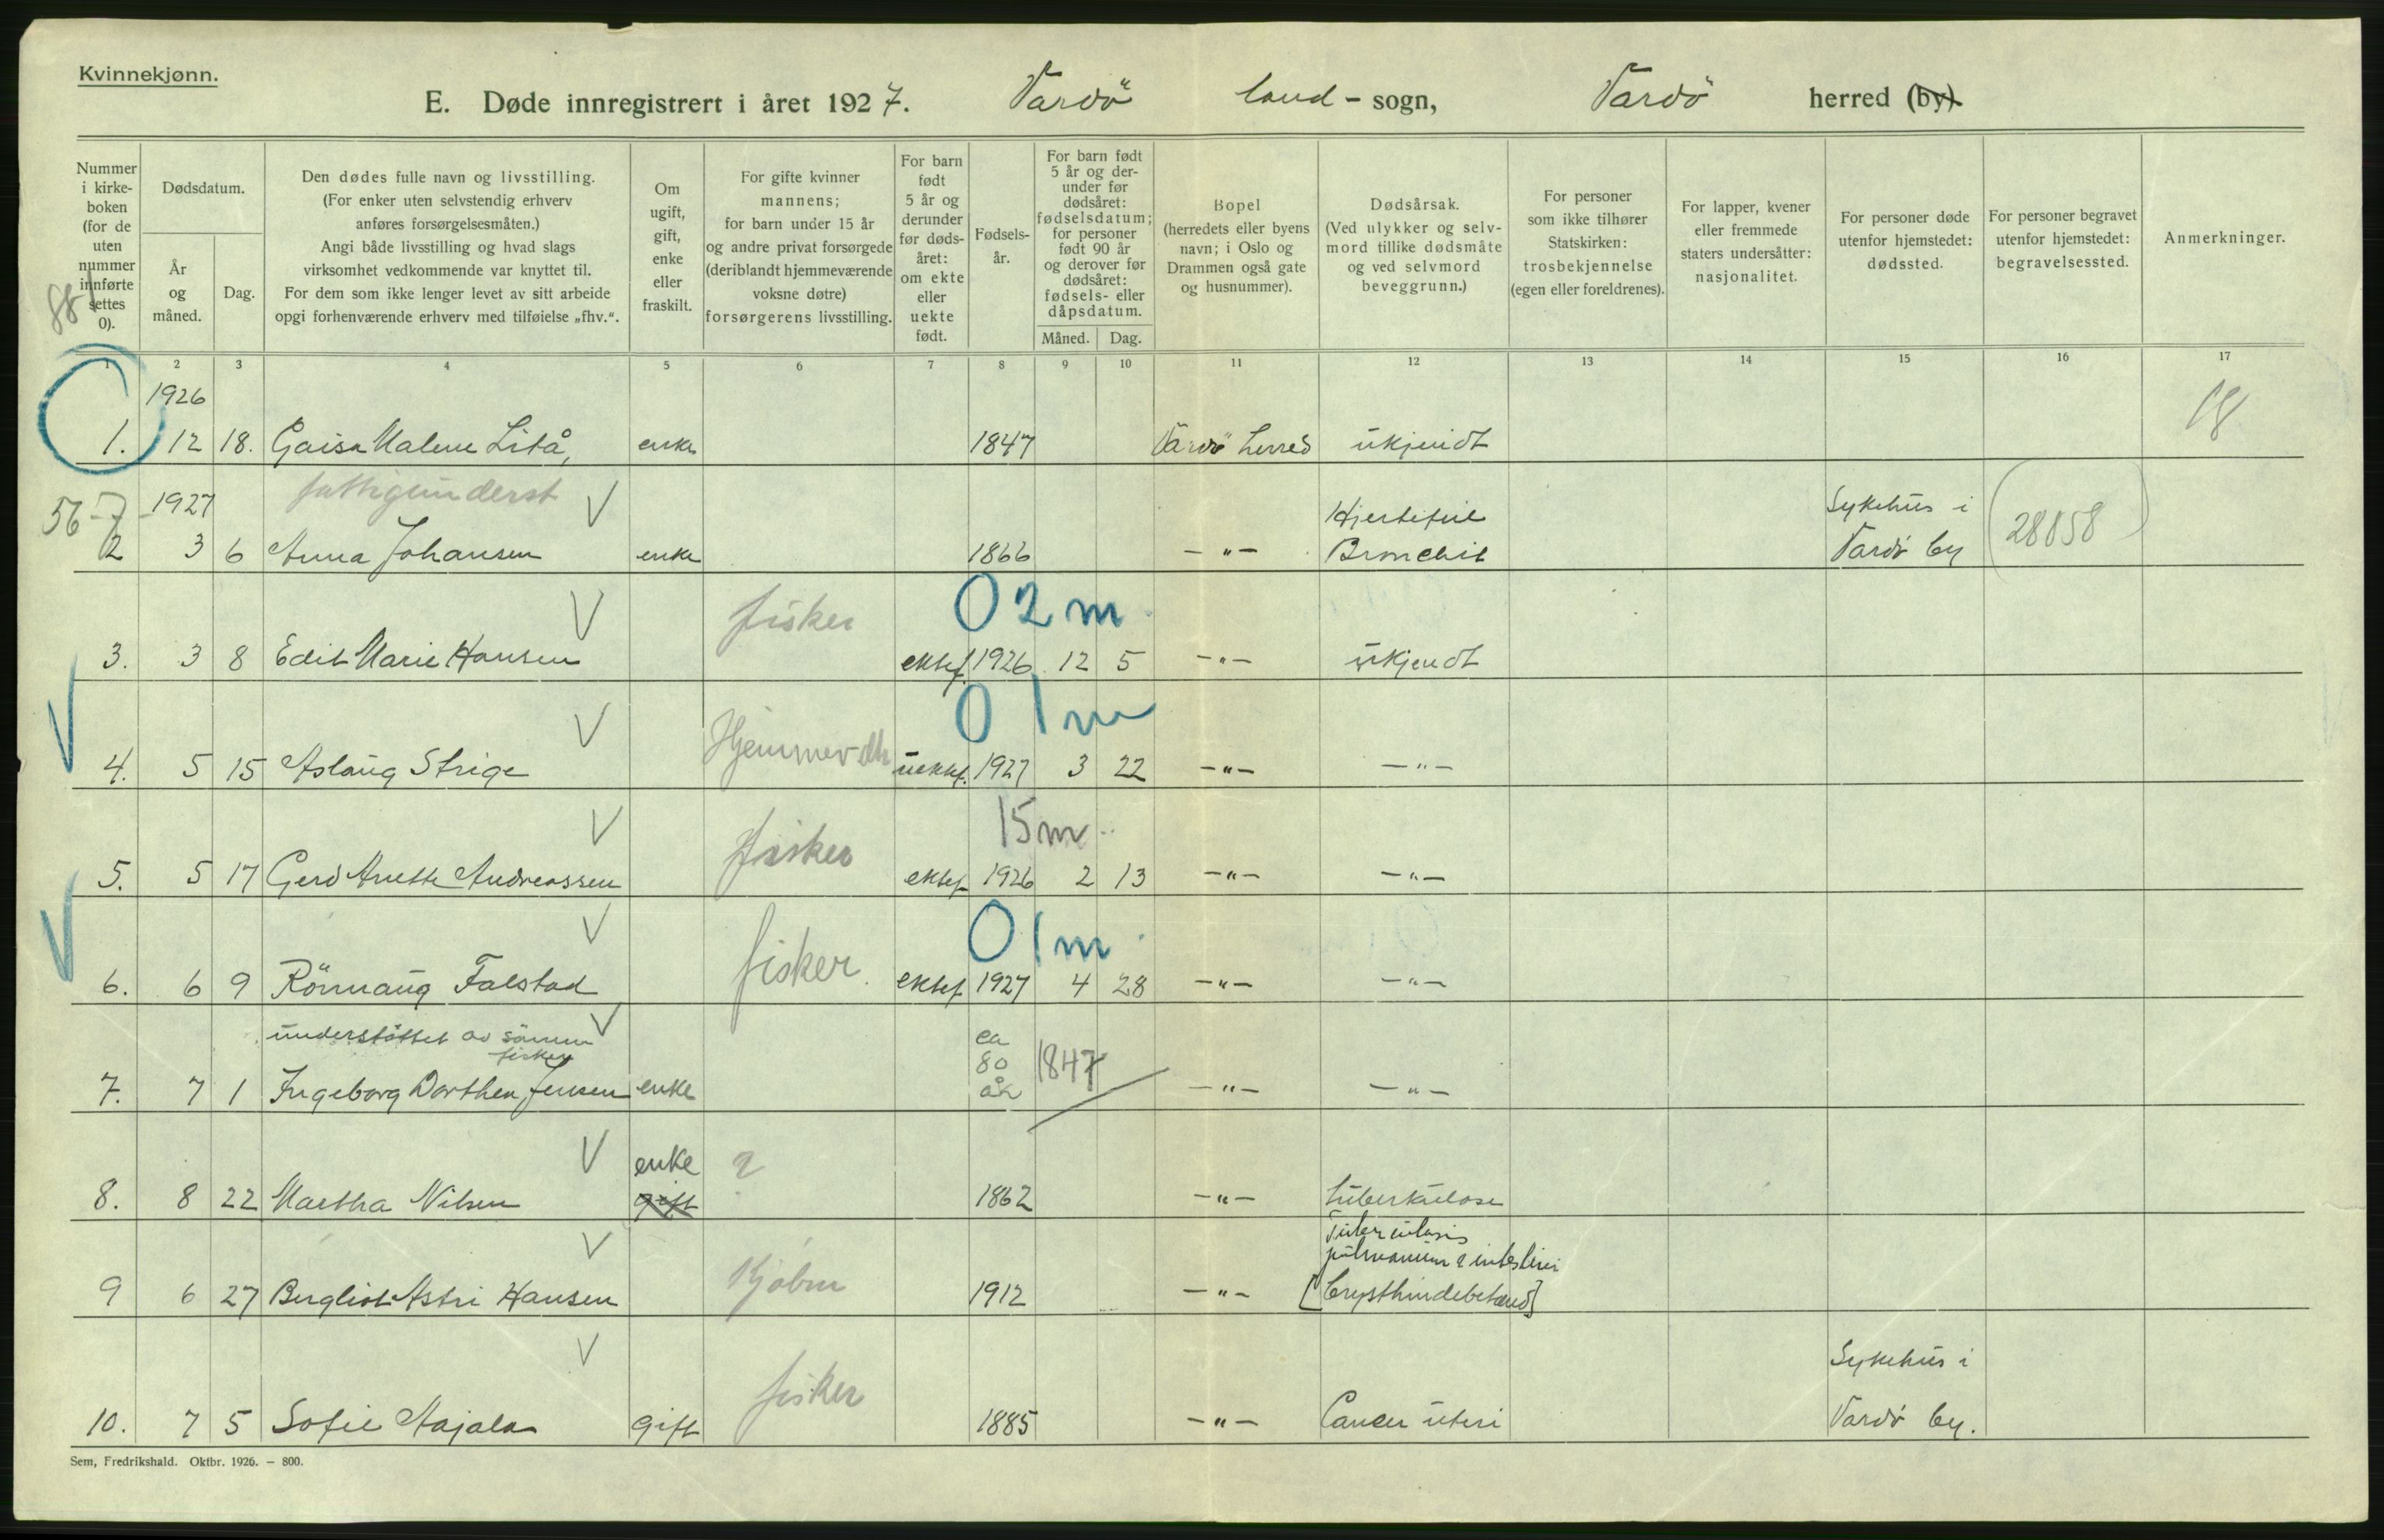 Kvinnekjønn.
E. Døde innregistrert i året 1927. Vardö land - sogn, Vardö herred (by)
Nummer i kirke-boken (for de uten nummer innførte settes 0).
Dødsdatum.
År og måned.
Dag.
Den dødes fulle navn og livsstilling.
(For enker uten selvstendig erhverv
anføres forsørgelsesmåten.)
Angi både livsstilling og hvad slags
virksomhet vedkommende var knyttet til.
For dem som ikke lenger levet av sitt arbeide
opgi forhenværende erhverv med tilføielse „fhv.“.
Om ugift, gift, enke eller fraskilt.
For gifte kvinner
mannens;
for barn under 15 år
og andre privat forsørgede
(deriblandt hjemmeværende
voksne døtre)
forsørgerens livsstilling.
For barn født 5 år og derunder før døds-året: om ekte eller uekte født.
Fødsels-år.
For barn født 5 år og der-under før dødsåret: fødselsdatum; for personer født 90 år og derover før dødsåret: fødsels- eller dåpsdatum.
Måned. Dag.
Bopel
(herredets eller byens
navn; i Oslo og
Drammen også gate
og husnummer).
Dødsårsak.
(Ved ulykker og selv-
mord tillike dødsmåte
og ved selvmord
beveggrunn.)
For personer
som ikke tilhører
Statskirken:
trosbekjennelse
(egen eller foreldrenes).
For lapper, kvener
eller fremmede
staters undersåtter:
nasjonalitet.
For personer døde
utenfor hjemstedet:
dødssted.
For personer begravet
utenfor hjemstedet:
begravelsessted.
Anmerkninger.
88
1 2 3 4 5 6 7 8 9 10 11 12 13 14 15 16 17
1926
1. 12 18. Gaisa Malene Litå, enke 1847 Vardö herred ukjendt 18
56-7 1927 fattigunderst V Hjertefeil Sykehus i
2 3 6 Anna Johansen enke 1866 -"- Bronchit Vardö by 28858
V fisker 0 2 m
3. 3 8 Edit Marie Hansen ektef. 1926 12 5 -"- ukjendt
V V Hjemmev dtr 0 1 m
4. 5 15 Aslaug Strige uektef. 1927 3 22 -"- -"-
V fisker 15 m
5. 5 17 Gerd Anette Andreassen ektef 1926 2 13 -"- -"-
V V fisker 0 1 m
6. 6 9 Rönnaug Falstad ektef 1927 4 28 -"- -"-
understöttet av sönnen V ca
fisker 80 1847
7. 7 1 Ingeborg Dorthea Jensen enke år -"- -"-
V enke ?
8. 8 22 Martha Nilsen gift 1862 -"- tuberkulose
V Tuberculosis
pulmonum & intestini
9 6 27 Bergliot Astri Hansen Kjöbm 1912 -"- [Brysthindebetænd]
V fisker Sykehus i
10. 7 5 Sofie Hajala gift 1885 -"- Cancer uteri Vardö by.
Sem, Fredrikshald. Oktbr. 1926. - 800.